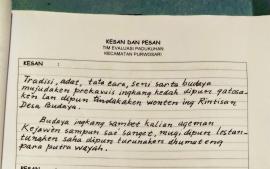 KESAN DAN PESAN
TIM EVALUASI PADUKUHAN
KECAMATAN PURWOSARI
KESAN :
Tradisi, adat, tata cara, seni sarta budaya
mujudaken prekawis ingkang kedah dipun gatosa-
ken lan dipun tindakaken wonten ing Rintisan
Desa Budaya.
Budaya ingkang sambet kalian ageman
Kejawen sampun sae sanget, mugi dipun lestan-
tunaken saha dipun turunaken dhumateng
para putra wayah.